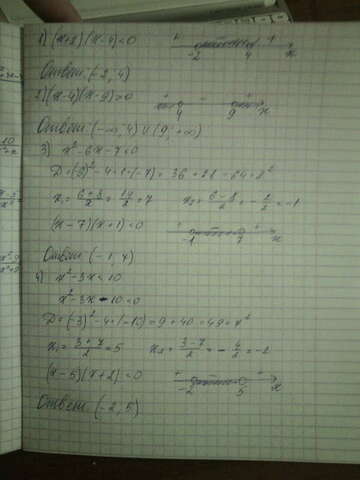 1) (x+2)(x-4)<0 + - + -2 4 x
Ответ: (-2, 4)
2) (x-4)(x-9)>0 + - + 4 9 x
Ответ: (-∞, 4) ∪ (9; +∞)
3) x²-6x-7<0
D=(6)²-4·1·(-7)=36+28=64=8²
x₁=(6+8)/2=14/2=7 x₂=(6-8)/2=-2/2=-1
(x-7)(x+1)<0 + - + -1 7 x
Ответ: (-1, 7)
4) x²-3x<10
x²-3x-10<0
D=(-3)²-4·(-10)=9+40=49=7²
x₁=(3+7)/2=5 x₂=(3-7)/2=-4/2=-2
(x-5)(x+2)<0 + - + -2 5 x
Ответ: (-2, 5)